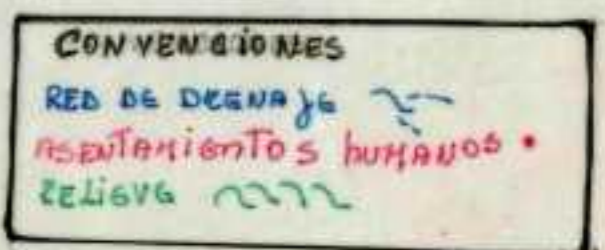 CONVENCIONES
RED DE DRENAJE
ASENTAMIENTOS HUMANOS
RELIEVE